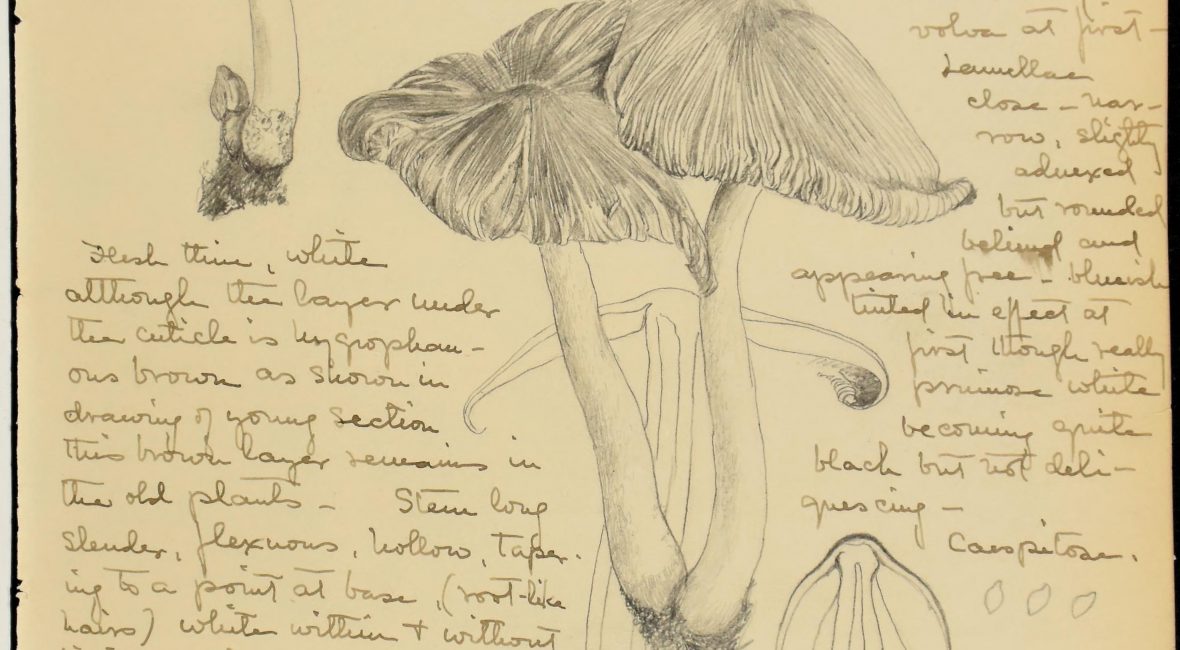 Flesh thin, white
although the layer under
the cuticle is hygrophan-
ous brown as shown in
drawing of young section
this brown layer remains in
the old plants – Stem long
slender, flexuous, hollow, taper-
ing to a point at base, (root-like
hairs) white within + without
volva at first –
Lamellae
close – nar-
row, slightly
adnexed
but rounded
behind and
appearing free – blueish
tinted in effect at
first though really
pruinose white
becoming quite
black but not deli-
quescing –
Caespitose.